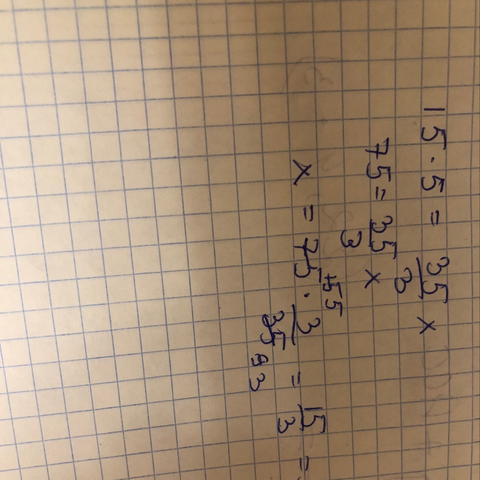 15 · 5 = 35/3 x
75 = 35/3 x
x = 75 · 3/35 = 15/3 =